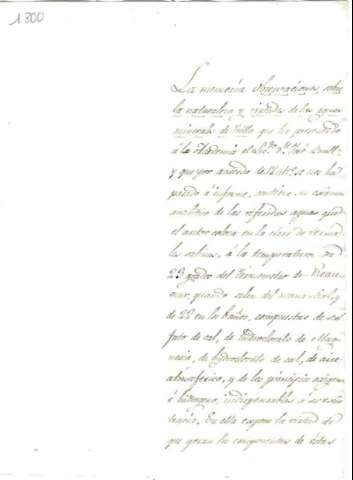 1800
La memoria Observaciones sobre
la naturaleza y virtudes de las aguas
minerales de Trillo que ha presentado
á la Academia el Sor. Dn. José
y que por acuerdo de se me ha
pasado á informe, contiene un exámen
analitico de las referidas aguas que
el autor coloca en la clase de
les salinas, á la temperatura de
23 grados del Termometro de Reau
mur quando salen del manantial, y
de 22 en los baños, compuestas de sul
fato de cal, de hidroclorato de Mag
nesia, de hidroclorato de cal, de aire
atmosferico, y de los principios
é indispensables á su exis
tencia. En ella expone la virtud de
que gozan los componentes de éstas